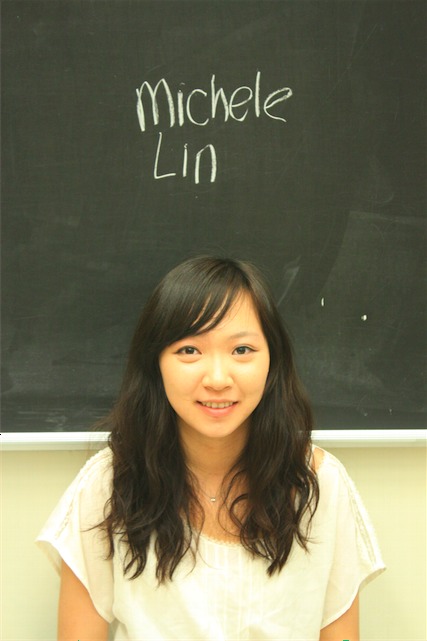 Michele
Lin